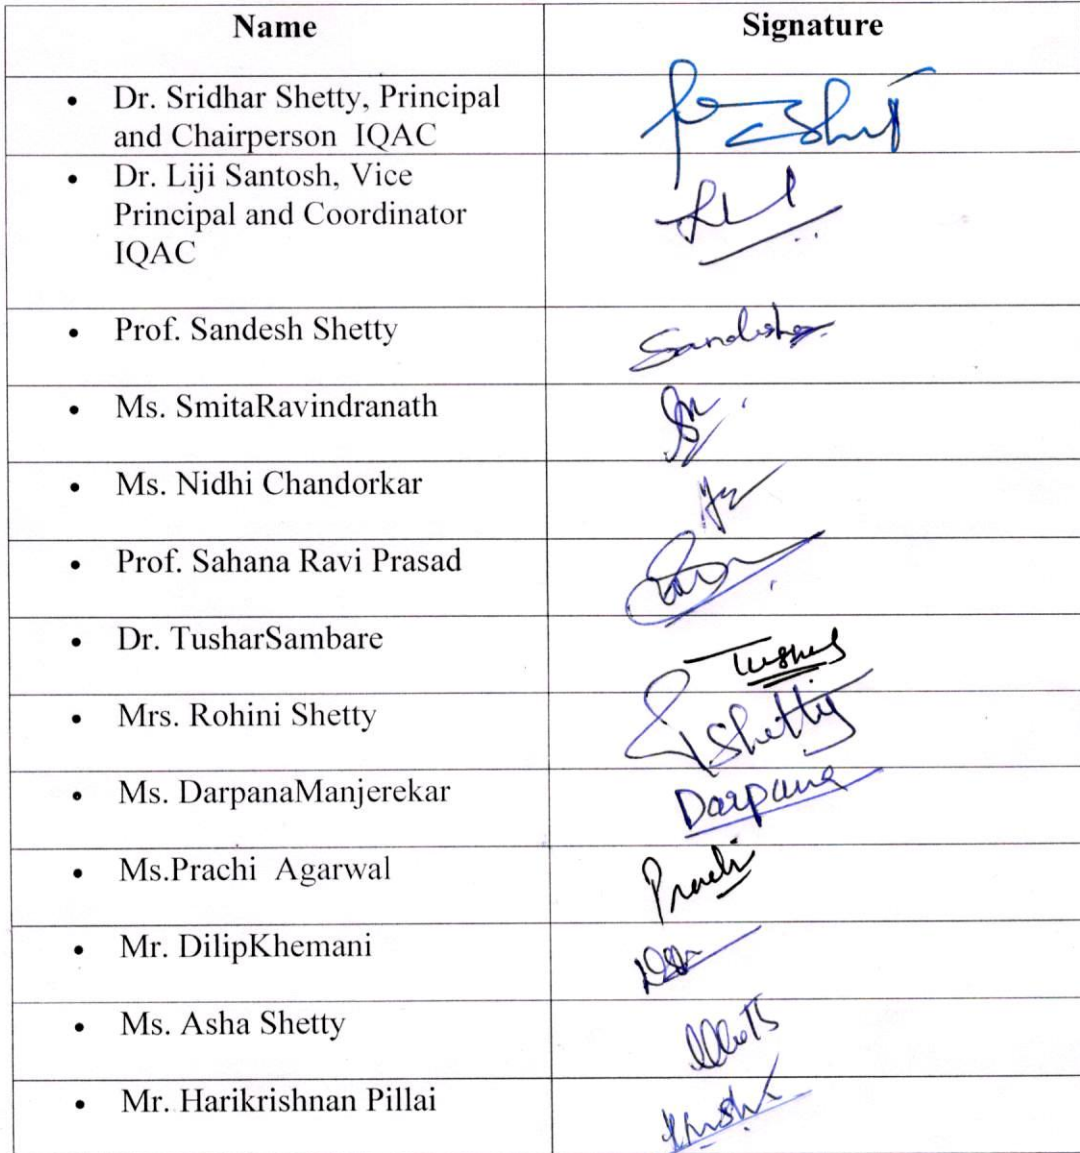 Name Signature
• Dr. Sridhar Shetty, Principal
and Chairperson IQAC
• Dr. Liji Santosh, Vice
Principal and Coordinator
IQAC
• Prof. Sandesh Shetty
Sandesh
• Ms. SmitaRavindranath
• Ms. Nidhi Chandorkar
• Prof. Sahana Ravi Prasad
• Dr. TusharSambare
Tushar
• Mrs. Rohini Shetty
Shetty
• Ms. DarpanaManjerekar
Darpana
• Ms.Prachi Agarwal
Prachi
• Mr. DilipKhemani
• Ms. Asha Shetty
• Mr. Harikrishnan Pillai